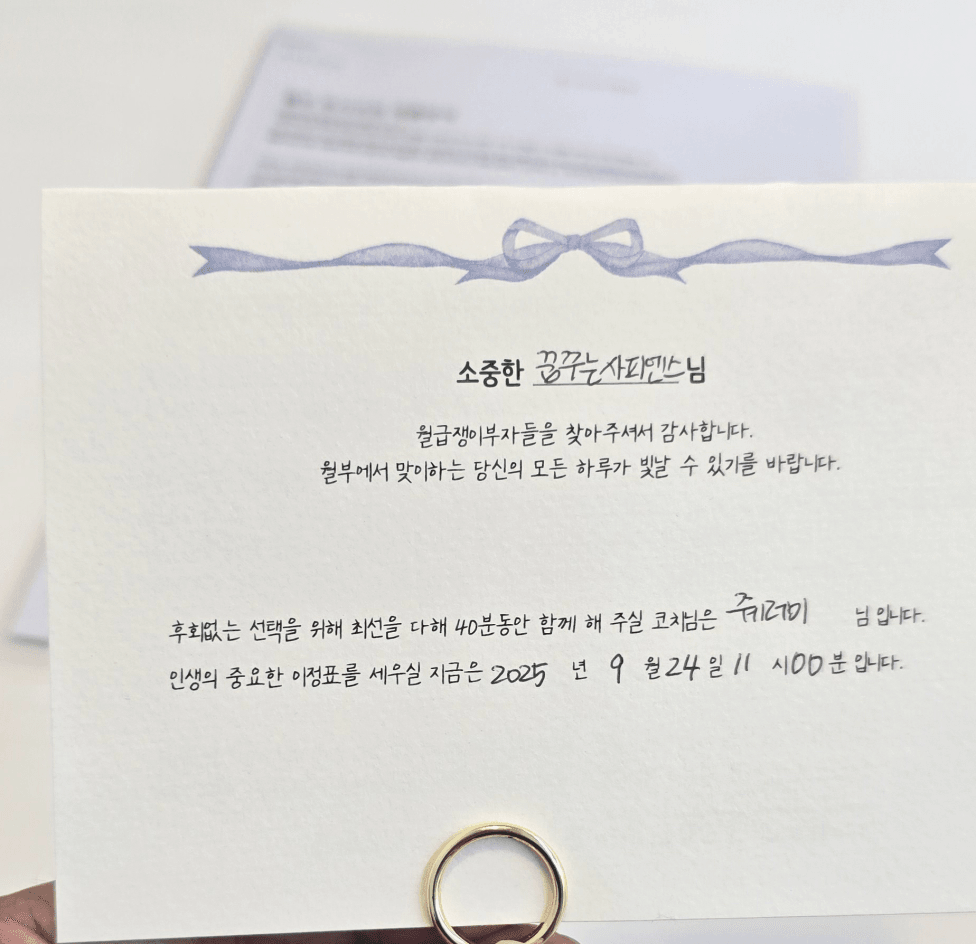 소중한 꿈꾸는사피엔스님
월급쟁이부자들을 찾아주셔서 감사합니다.
월부에서 맞이하는 당신의 모든 하루가 빛날 수 있기를 바랍니다.
후회없는 선택을 위해 최선을 다해 40분동안 함께 해 주실 코치님은 쥬러미 님 입니다.
인생의 중요한 이정표를 세우실 지금은 2025 년 9 월 24 일 11 시 00 분 입니다.